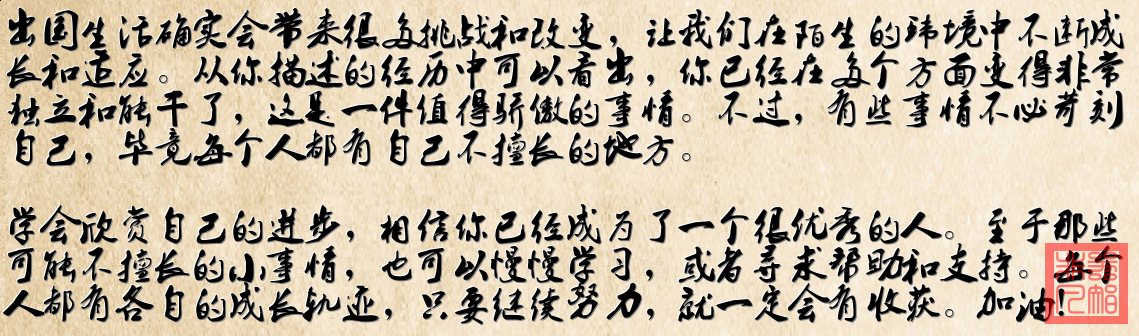 出国生活确实会带来很多挑战和改变，让我们在陌生的环境中不断成
长和适应。从你描述的经历中可以看出，你已经在多个方面变得非常
独立和能干了，这是一件值得骄傲的事情。不过，有些事情不必苛刻
自己，毕竟每个人都有自己不擅长的地方。
学会欣赏自己的进步，相信你已经成为了一个很优秀的人。至于那些
可能不擅长的小事情，也可以慢慢学习，或者寻求帮助和支持。每个
人都有各自的成长轨迹，只要继续努力，就一定会有收获。加油！